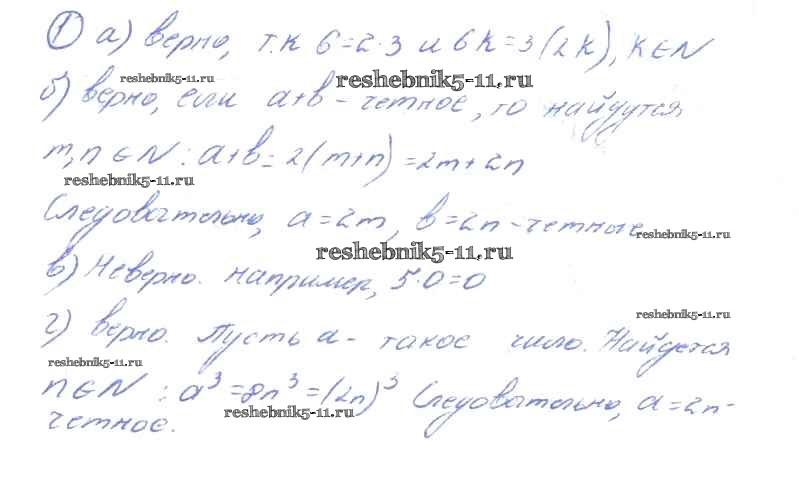 ① а) верно, т.к 6=2·3 и 6k=3(2k), k∈N
reshebnik5-11.ru
reshebnik5-11.ru
б) верно, если a+b - четное, то найдутся
m,n∈N: a+b=2(m+n)=2m+2n
reshebnik5-11.ru
Следовательно, a=2m, b=2n - четные
reshebnik5-11.ru
reshebnik5-11.ru
в) Неверно. например, 5·0=0
reshebnik5-11.ru
г) верно. Пусть a - такое число. Найдется
reshebnik5-11.ru
n∈N : a³=8n³=(2n)³ Следовательно, a=2n-
reshebnik5-11.ru
четное.